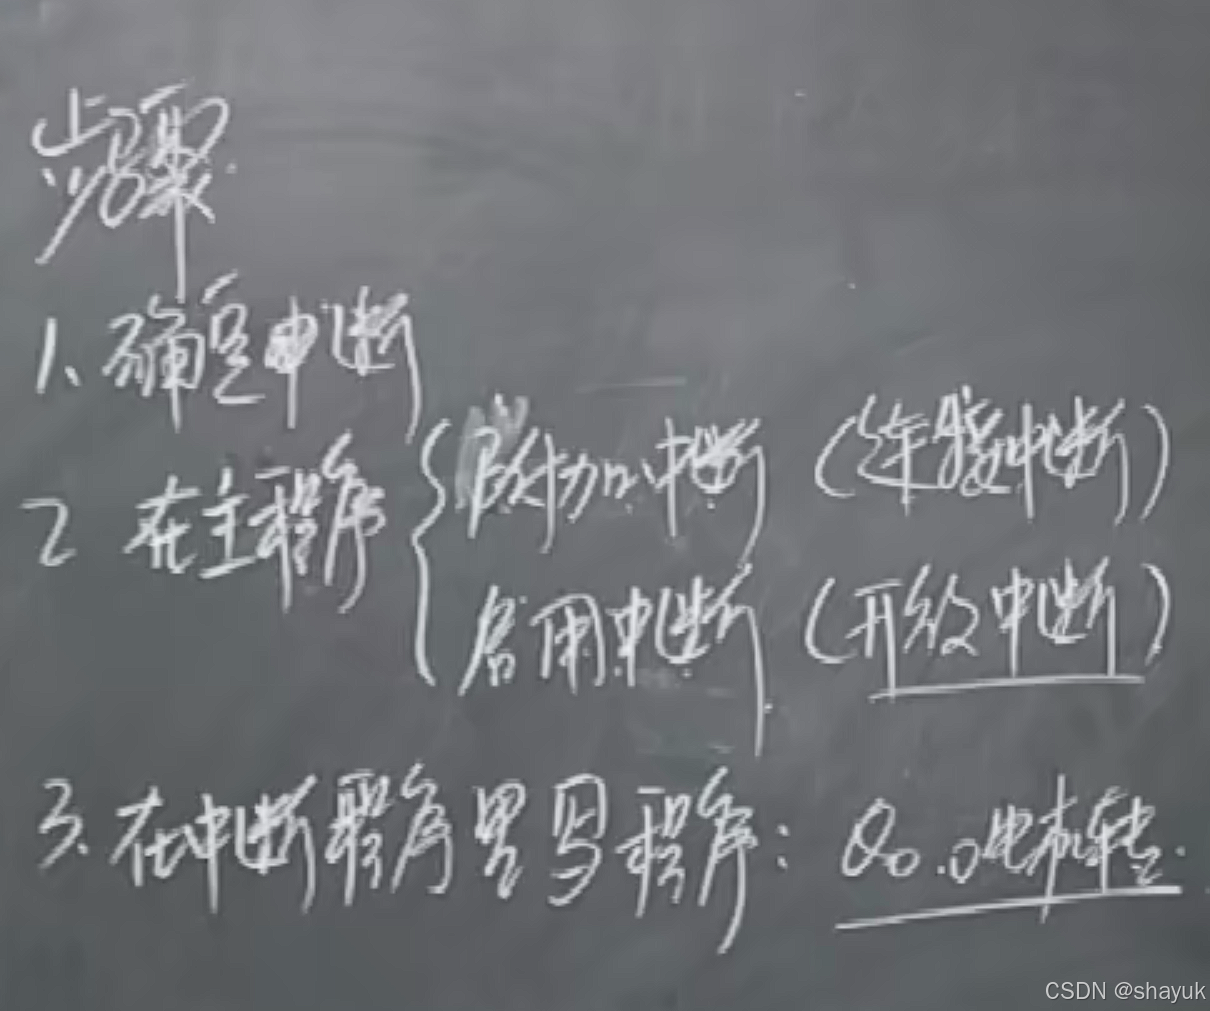 步骤
1、确定中断
2 在主程序
附加中断 (连接中断)
启用中断 (开放中断)
3. 在中断程序里写程序: Q0.0电机转.
CSDN @shayuk